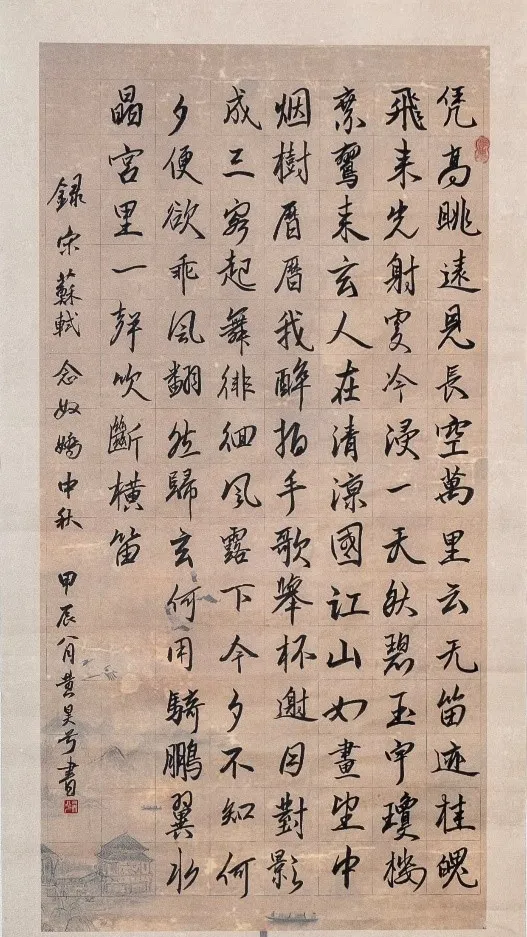 凭高眺遠見長空萬里云无留迹桂魄
飛来先射處冷浸一天秋碧玉宇瓊樓
乘鸞来去人在清涼國江山如畫望中
烟樹曆曆我醉拍手歌舉杯邀月對影
成三客起舞徘徊风露下今夕不知何
夕便欲乘风翻然歸去何用騎鵬翼水
晶宮里一聲吹斷横笛
録宋蘇軾念奴嬌中秋 甲辰八月黄昊兮書